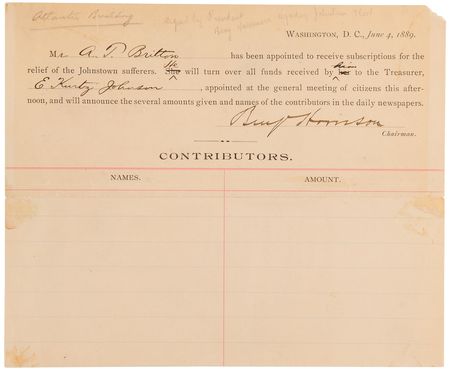 Atlantic Building
signed by President
Benj Harrison regarding Johnstown Flood
WASHINGTON, D. C., June 4, 1889.
Mr A. T. Britton has been appointed to receive subscriptions for the
He
relief of the Johnstown sufferers. She will turn over all funds received by her to the Treasurer,
him
E Kurtz Johnson, appointed at the general meeting of citizens this after-
noon, and will announce the several amounts given and names of the contributors in the daily newspapers.
Benj Harrison
Chairman.
CONTRIBUTORS.
NAMES. AMOUNT.